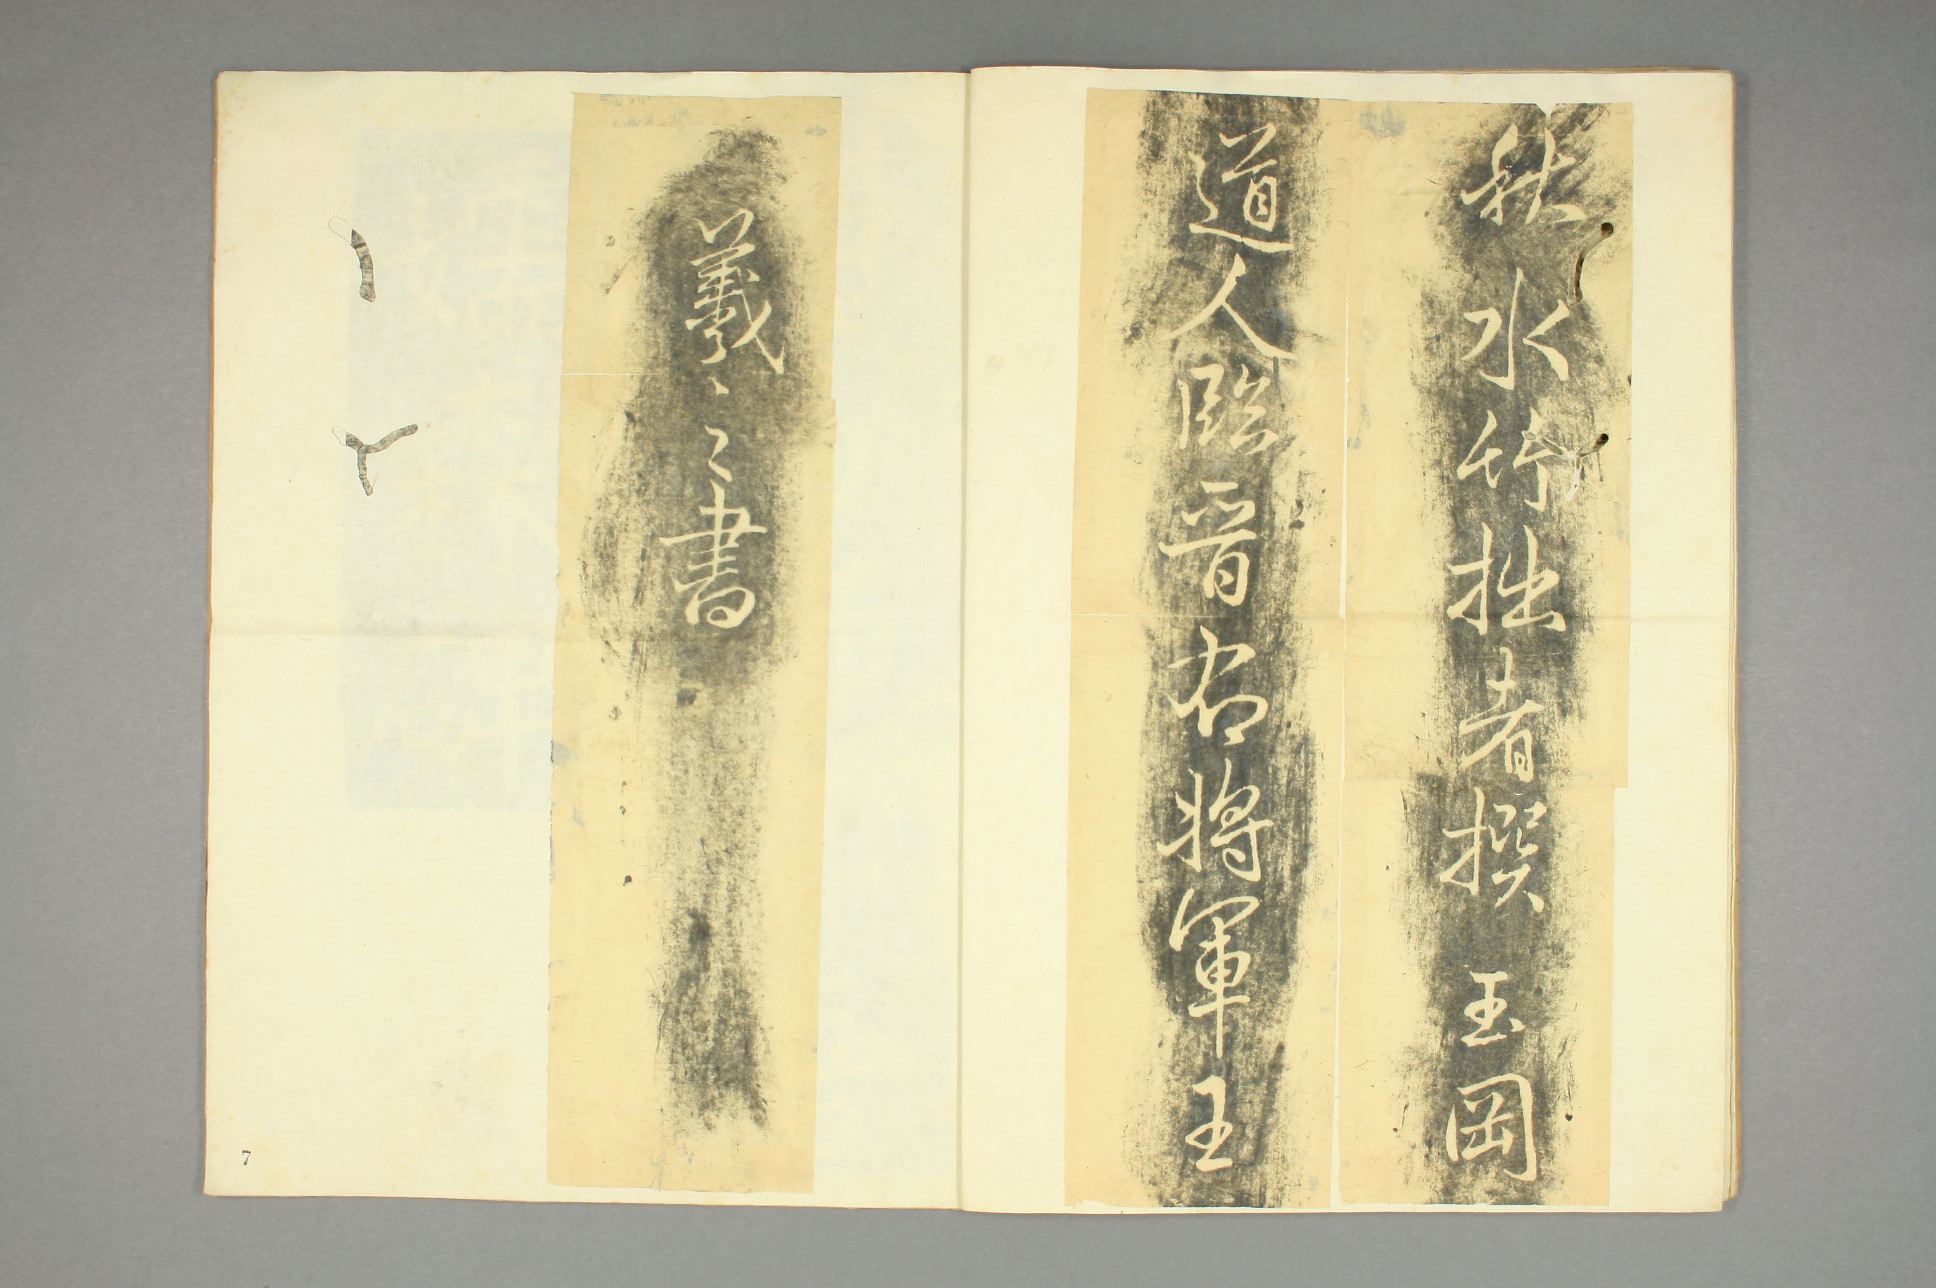 秋水竹拙者撰 玉岡
道人臨晋右將軍王
羲之書
7